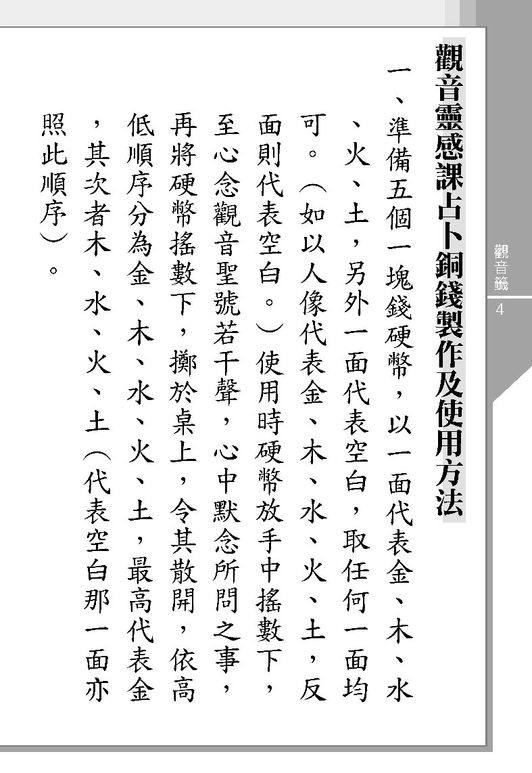 觀音靈感課占卜銅錢製作及使用方法
一、準備五個一塊錢硬幣，以一面代表金、木、水
、火、土，另外一面代表空白，取任何一面均
可。（如以人像代表金、木、水、火、土，反
面則代表空白。）使用時硬幣放手中搖數下，
至心念觀音聖號若干聲，心中默念所問之事，
再將硬幣搖數下，擲於桌上，令其散開，依高
低順序分為金、木、水、火、土，最高代表金
，其次者木、水、火、土（代表空白那一面亦
照此順序）。
觀音籤
4